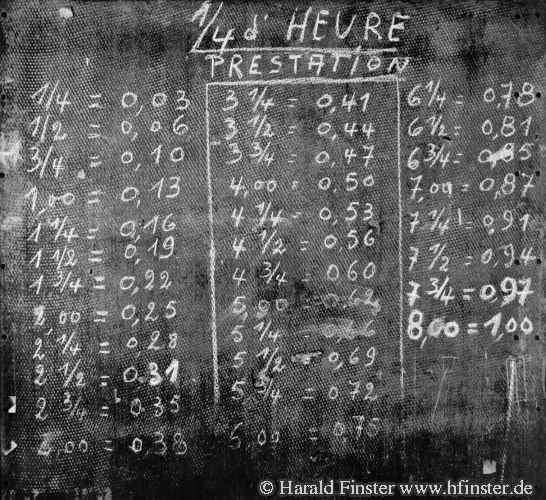 1/4 d' HEURE
PRESTATION
1/4 = 0,03
1/2 = 0,06
3/4 = 0,10
1,00 = 0,13
1 1/4 = 0,16
1 1/2 = 0,19
1 3/4 = 0,22
2,00 = 0,25
2 1/4 = 0,28
2 1/2 = 0.31
2 3/4 = 0.35
,00 = 0,38
3 1/4 = 0,41
3 1/2 = 0,44
3 3/4 = 0,47
4,00 = 0,50
4 1/4 = 0,53
4 1/2 = 0,56
4 3/4 = 0,60
5,00 = 0,62
5 1/4 =
5 1/2 = 0,69
5 3/4 = 0,72
6 00 = 0,75
6 1/4 = 0,78
6 1/2 = 0,81
6 3/4 = 0,85
7,00 = 0,87
7 1/4 = 0,91
7 1/2 = 0,94
7 3/4 = 0,97
8,00 = 1,00
© Harald Finster www.hfinster.de